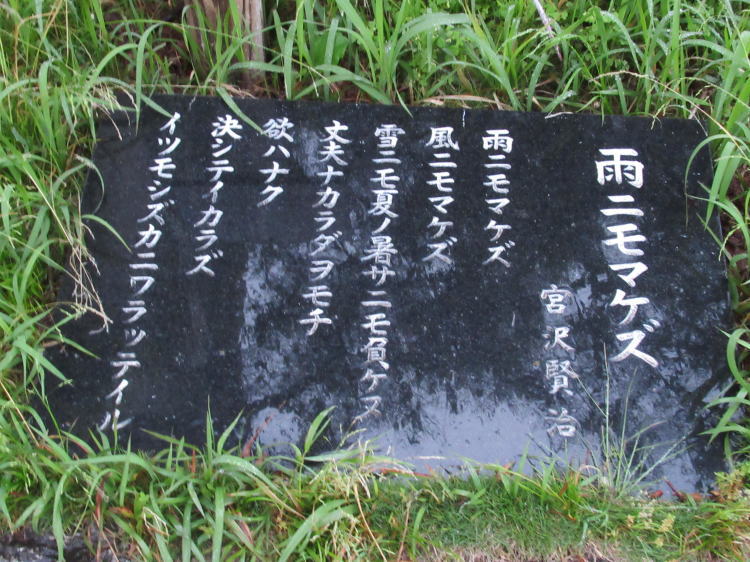 雨ニモマケズ
宮沢賢治
雨ニモマケズ
風ニモマケズ
雪ニモ夏ノ暑サニモ負ケヌ
丈夫ナカラダヲモチ
欲ハナク
決シテイカラズ
イツモシズカニワラッテイル